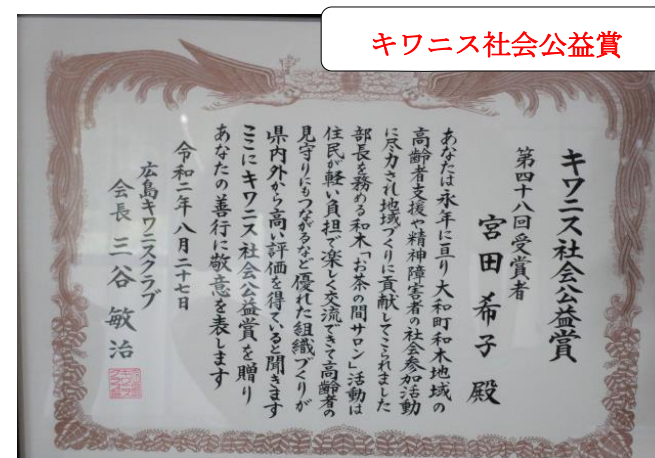 キワニス社会公益賞
キワニス社会公益賞
第四十八回受賞者
宮田希子 殿
あなたは永年に亘り大和町和木地域の
高齢者支援や精神障害者の社会参加活動
に尽力され地域づくりに貢献してこられました
部長を務める和木「お茶の間サロン」活動は
住民が軽い負担で楽しく交流できて高齢者の
見守りにもつながるなど優れた組織づくりが
県内外から高い評価を得ていると聞きます
ここにキワニス社会公益賞を贈り
あなたの善行に敬意を表します
令和二年八月二十七日
広島キワニスクラブ
会長 三谷敏治